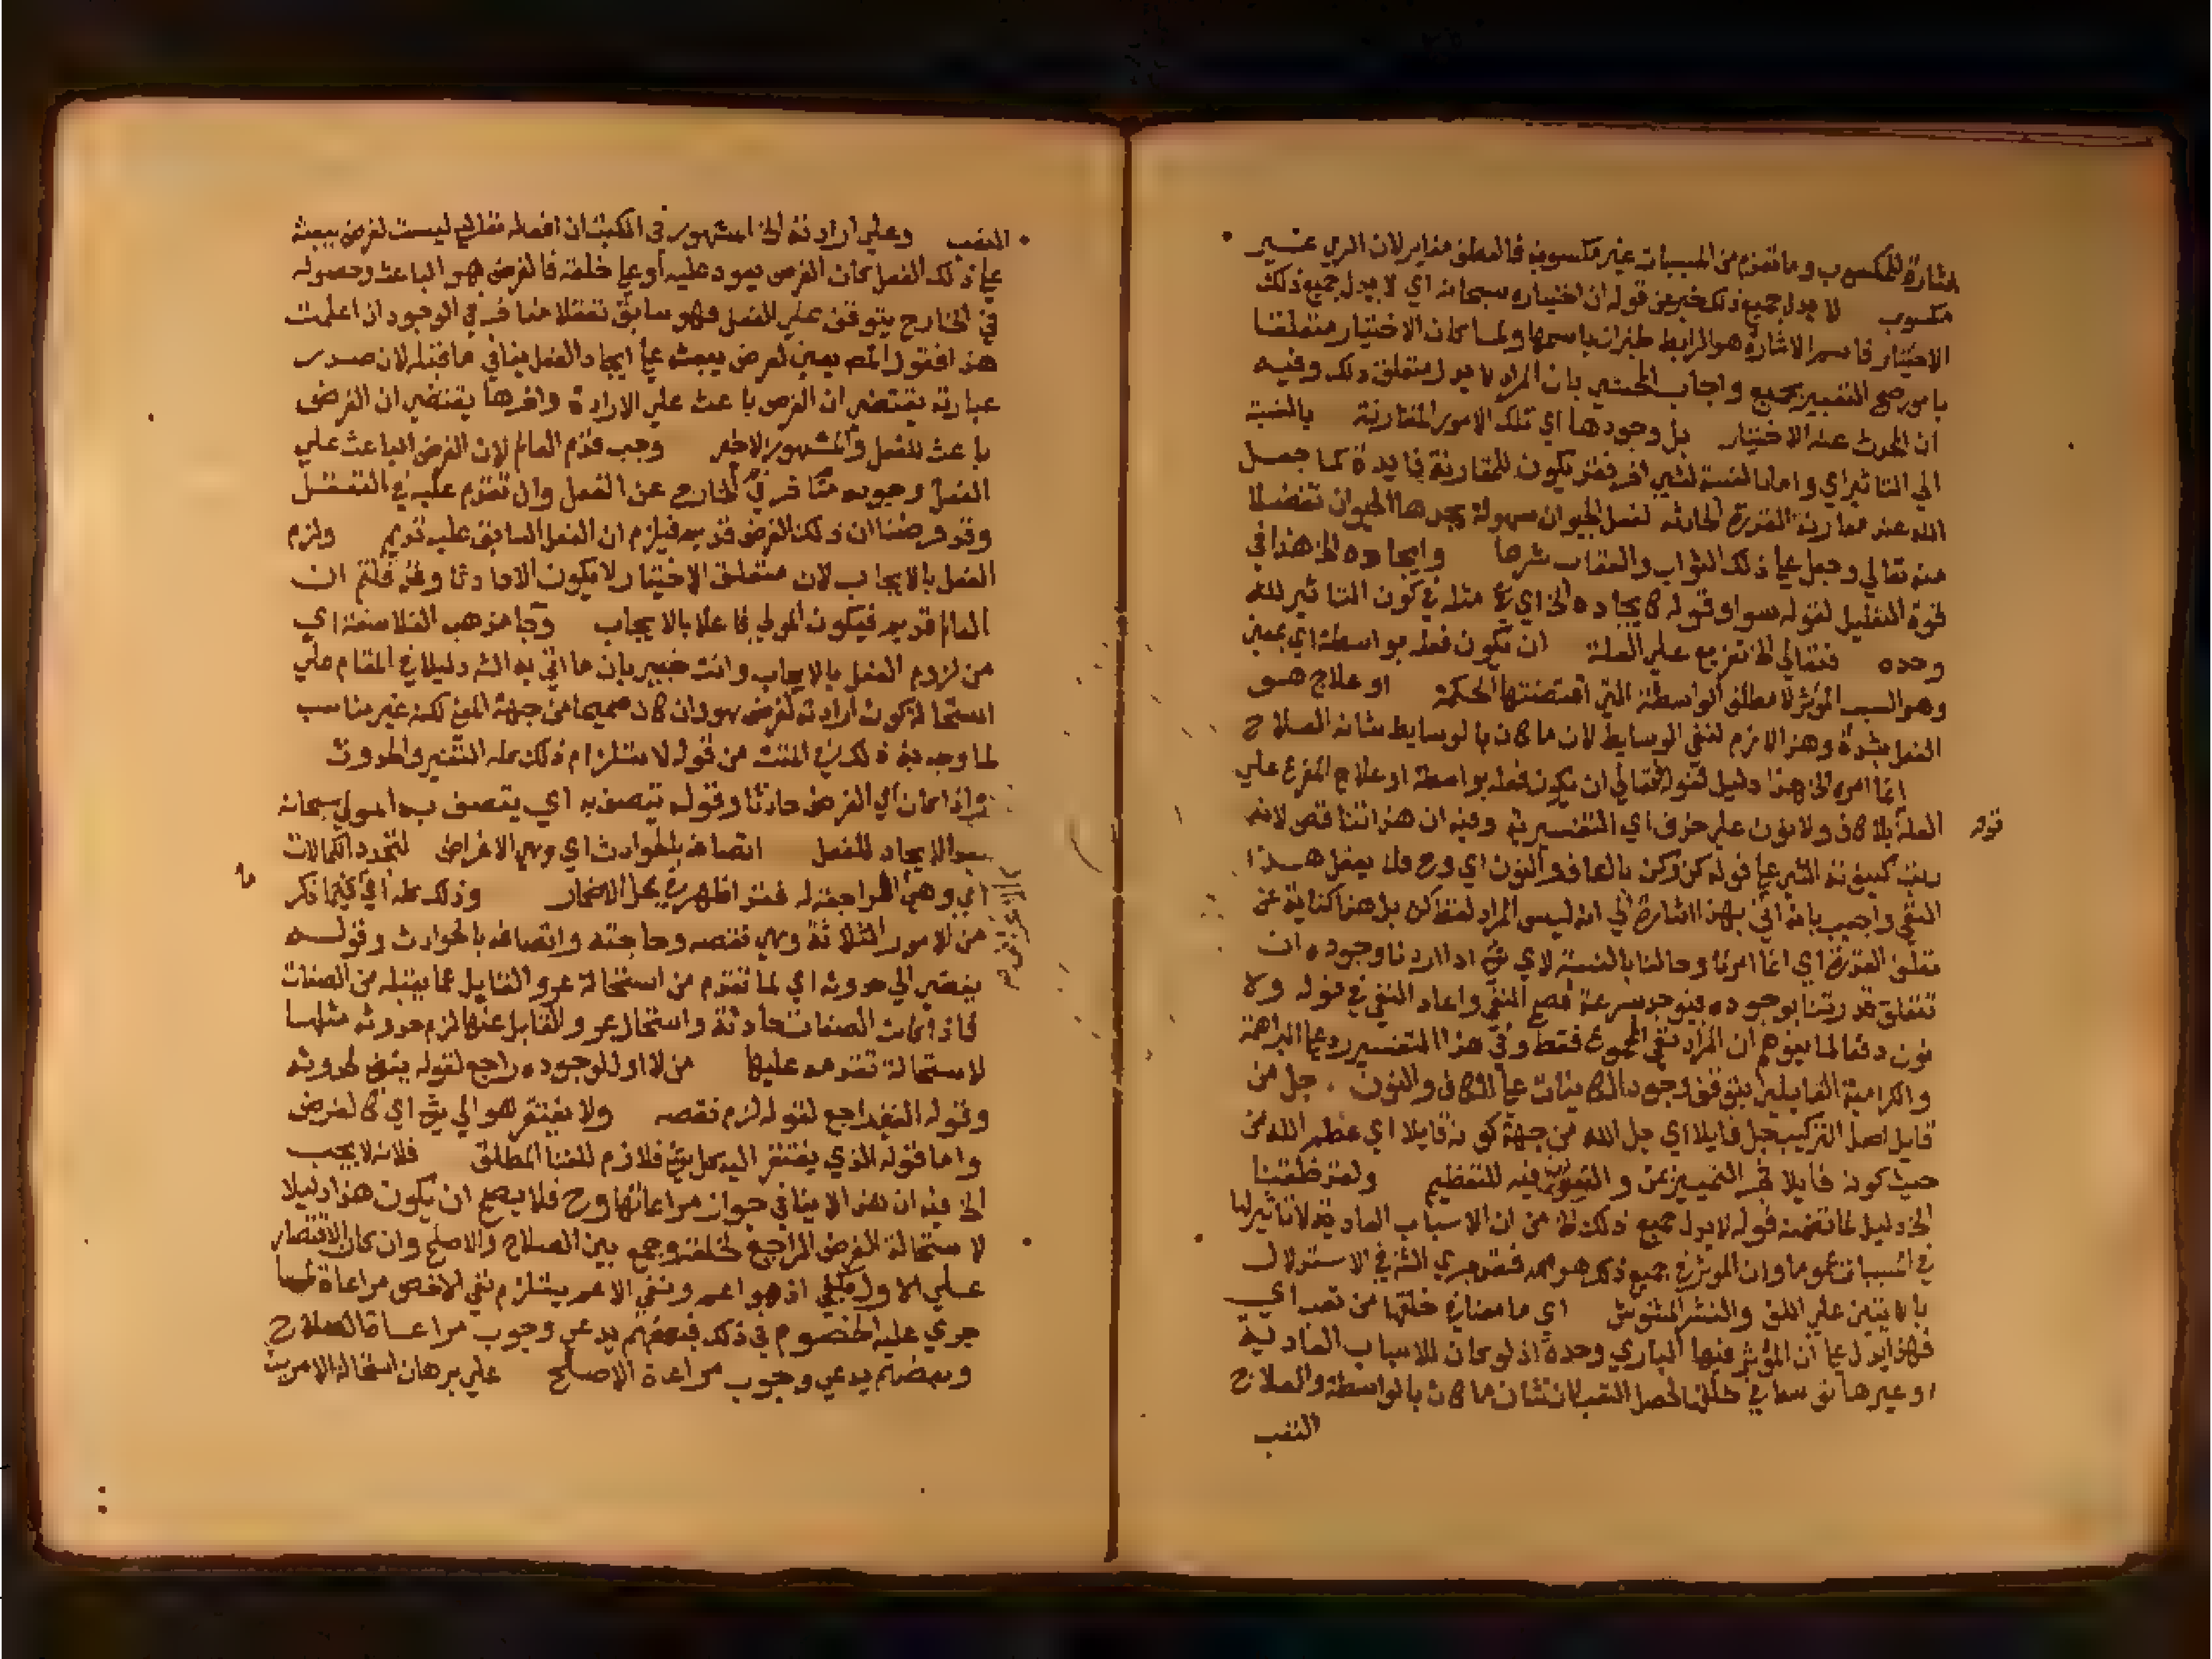 اشارة للمكسوب وما تقدم من المسببات غير مكسوبة فالعطف مغاير لان الري غير
مكسوب لا يدل جميع ذلك خبر عن قوله ان اختياره سبحانه اي لا يدل جميع ذلك
الاختيار فاسم الاشارة هو الرابط لخبر ان باسمها ولما كان الاختيار متعلقا
بامور صح التعبير بجميع واجاب المحشي بان المراد لا يدل متعلق ذلك وفيه
ان المحدث عنه الاختيار بل وجودها اي تلك الامور المقارنة بالنسبة
الي التاثير اي واما بالنسبة لشي اخر فقد يكون للمقارنة فايدة كما جعل
الله عند مقارنة القدرة الحادثة لفعل الحيوان سهولة يجدها الحيوان تفضلا
منه تعالي وجعل علي ذلك الثواب والعقاب شرعا وايجاده الخ هذا في
قوة التعليل لقوله سوا وقوله كايجاده الخ اي مثله في كون التاثير لله
وحده فتعالي الخ تفريع علي العلة ان يكون فعله بواسطة اي بمعين
وهو السبب المؤثر لا مطلق الواسطة التي اقتضتها الحكمة او علاج هو
الفعل بشدة وهذا لازم لنفي الوسايط لان ما كان بالوسايط شانه العلاج
انما امره الخ هذا دليل لقوله فتعالي ان يكون فعله بواسطة او علاج المفرع علي
العلة بلا كاف ولا نون علي حذف اي التفسيرية وفيه ان هذا تناقض لانه
كن وكن بالكاف والنون اي وح فلا يعقل هذا
النفي واجيب بانه اتي بهذا اشارة الي انه ليس المراد لفظ كن بل هذا كناية عن
تعلق القدرة اي انما امرنا وحالنا بالنسبة لاي شي اذا اردنا وجوده ان
تتعلق قدرتنا بوجوده فيوجد بسرعة فصح النفي واعاد النفي في قوله ولا
نون دفعا لما يتوهم ان المراد نفي المجموع فقط وفي هذا التفسير رد علي البراهمة
والكرامية القايلين بتوقف وجود الكاينات علي الكاف والنون . جل من
قايل اصل التركيب جل قايلا اي جل الله من جهة كونه قايلا اي عظم الله من
حيث كونه قايلا فجر التمييز بمن والتنوين فيه للتعظيم ولقد خلقنا
الخ دليل لما تضمنه قوله لا يدل جميع ذلك الخ من ان الاسباب العادية لا تاثير لها
في المسببات عموما وان المؤثر في جميع ذلك هو الله فقد جري الشه في الاستدلال
بالايتين علي اللف والنشر المشوش اي ما معناه خلقها من تعب اي
فهذا يدل علي ان المؤثر فيها الباري وحده اذ لو كان للاسباب العادية
او غيرها توسط في خلقنا لحصل التعب لان شان ما كان بالواسطة والعلاج
التعب
قوله
التعب وعلي ارادته الخ المشهور في الكتب ان افعاله تعالي ليست لغرض يبعثه
علي ذلك الفعل كان الغرض يعود عليه او علي خلقه فالغرض هو الباعث وحصوله
في الخارج يتوقف علي الفعل فهو سابق تعقلا متاخر في الوجود اذا علمت
هذا فقول المص بعين لغرض يبعثه علي ايجاد الفعل ينافي ما قبله لان صدر
عبارته يقتضي ان الغرض باعث علي الارادة واخرها يقتضي ان الغرض
باعث للفعل والمشهور الاخير وجب قدم العالم لان الغرض الباعث علي
الفعل وجوده متاخر في الخارج عن الفعل وان تقدم عليه في التعقل
وقد فرضنا ان ذلك الغرض قديم فيلزم ان الفعل السابق عليه قديم ولزم
الفعل بالايجاب لان متعلق الاختيار لا يكون الا حادثا وقد قلتم ان
العالم قديم فيكون المولي فاعلا بالايجاب وجا مذهب الفلاسفة اي
من لزوم الفعل بالايجاب وانت خبير بان ما اتي به الشه دليلا في المقام علي
استحالة كون ارادته لغرض هو وان كان صحيحا من جهة المعني لكنه غير مناسب
لما وجه به ذلك في المتن من قوله لاستلزام ذلك عليه التغير والحدوث
واذا كان اي الغرض حادثا وقوله يتصف به اي يتصف به المولي سبحانه
بعد الايجاد للفعل اتصافه بالحوادث اي وهي الاغراض لتجدد الكمالات
اي وهي الراجعة له فقد اظهر في محل الاضمار وذلك كله اي فيما ذكر
من الامور الثلاثة وهي نقصه وحاجته واتصافه بالحوادث وقوله
يفضي الي حدوثه اي لما تقدم من استحالة عرو القابل عما يقبله من الصفات
فاذا كانت الصفات حادثة واستحال عرو القابل عنها لزم حدوثه مثلها
لاستحالة تقدمه عليها من لا اول لوجوده راجع لقوله يفضي لحدوثه
وقوله الغني راجع لقوله لزم نقصه ولا يفتقر هو الي شي اي كالغرض
واما قوله الذي يفتقر اليه كل شي فلازم للغنا المطلق فلانه لا يجب
الخ فيه ان هذا لا ينافي جواز مراعاتها وح فلا يصح ان يكون هذا دليلا
لاستحالة الغرض الراجع لخلقه وجمع بين الصلاح والاصلح وان كان الاقتصار
علي الاول يكفي اذ هو اعم ونفي الاعم يستلزم نفي الاخص مراعاة لما
جري عليه الخصوم في ذلك فبعضهم يدعي وجوب مراعاة الصلاح
وبعضهم يدعي وجوب مراعاة الاصلح علي برهان استحالة الامرين